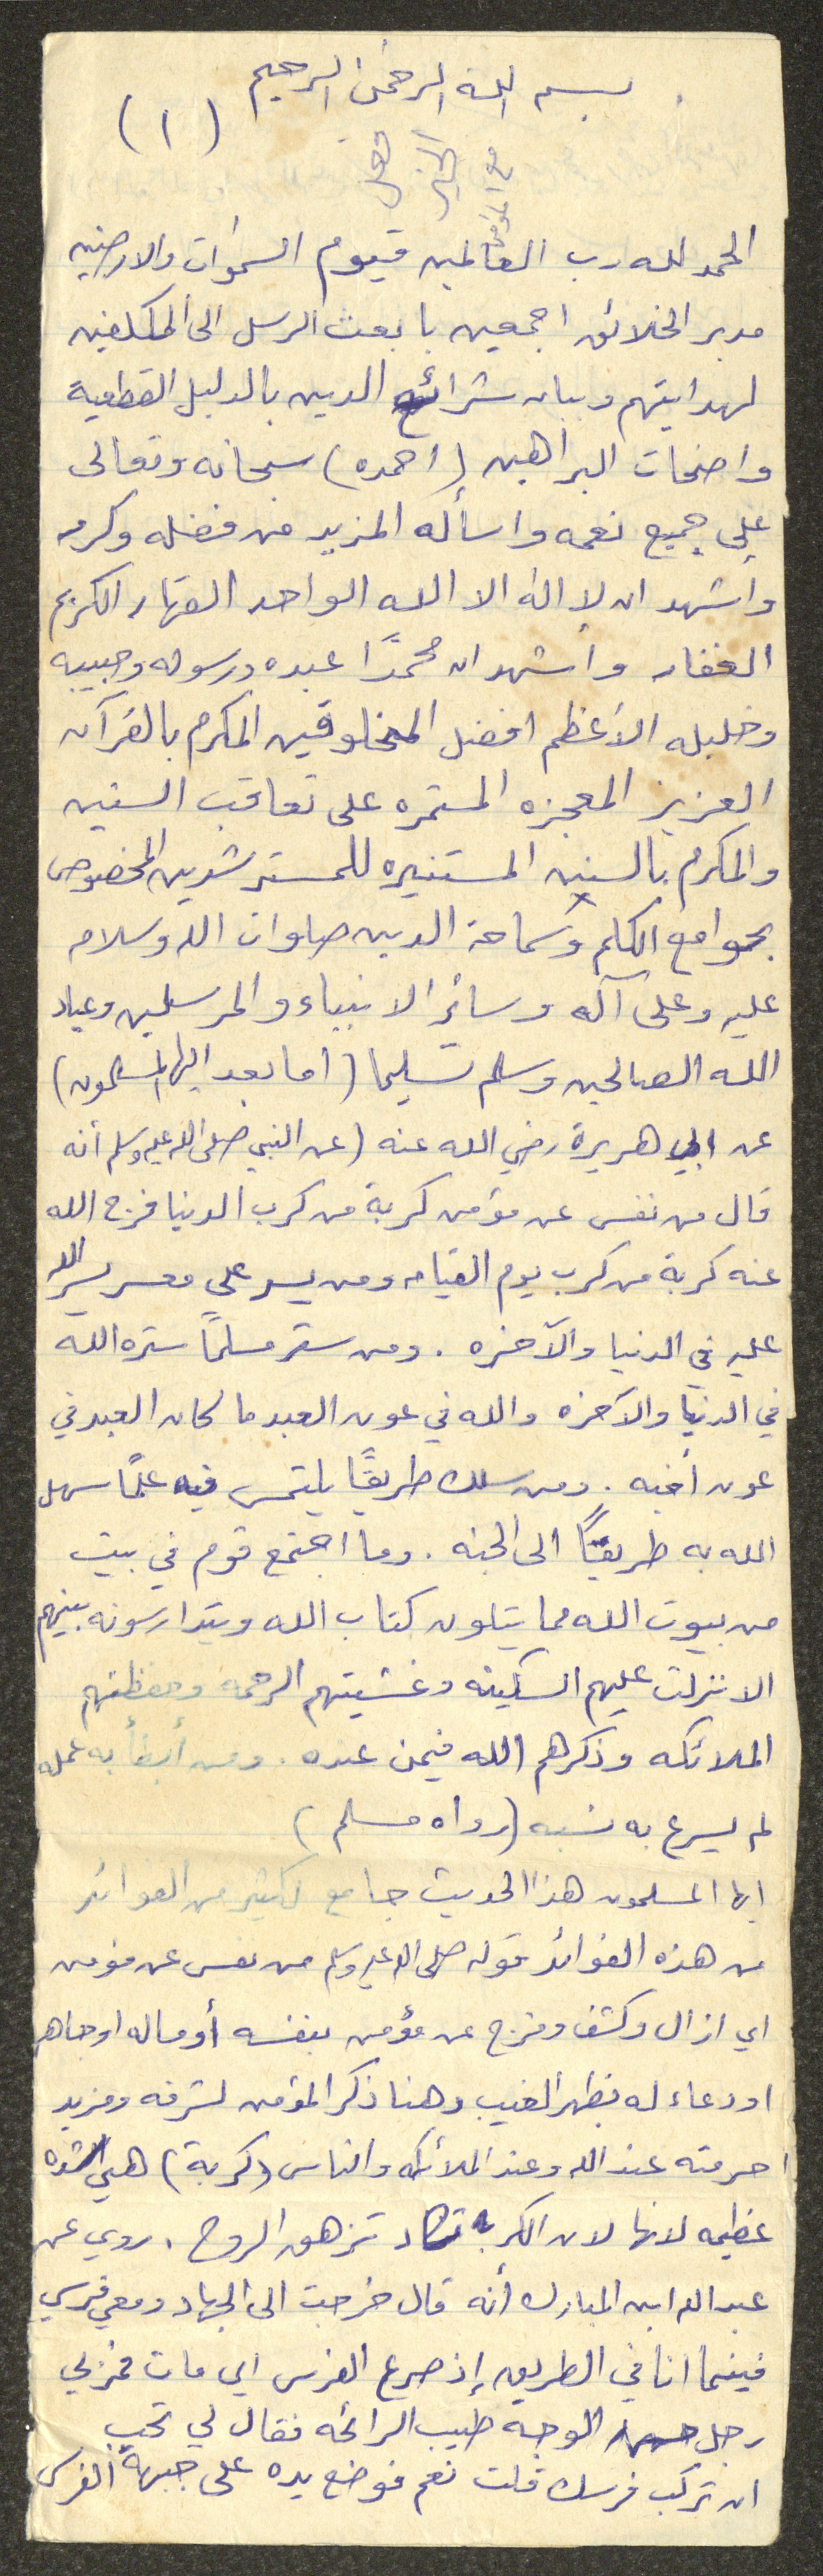 بسم الله الرحمن الرحيم
(١)
الحمد لله رب العالمين قيوم السموات والارضين
مدبر الخلائق اجمعين باعث الرسل الى المكلفين
لهدايتهم وبيان شرائع الدين بالدليل القطعية
واضحات البراهين (احمده) سبحانه وتعالى
على جميع نعمه واسأله المزيد من فضله وكرمه
واشهد ان لا اله الا الله الواحد القهار الكريم
الغفار وأشهد ان محمدًا عبده ورسوله وحبيبه
وخليله الأعظم افضل المخلوقين المكرم بالقرآن
العزيز المعجزه المستمره على تعاقب السنين
والمكرم بالسنن المستنيره للمسترشدين المخصوص
بجوامع الكلم وسماحة الدين صلوات الله وسلامه
عليه وعلى آله وسائر الانبياء والمرسلين وعباد
الله الصالحين وسلم تسليما (اما بعد ايها المسلمون)
عن ابي هريرة رضي الله عنه (عن النبي صلى الله عليه وسلم أنه
قال من نفس عن مؤمن كربة من كرب الدنيا فرج الله
عنه كربة من كرب يوم القيامه ومن يسر على معسر يسر الله
عليه في الدنيا والآخره . ومن ستر مسلمًا ستره الله
في الدنيا والآخره والله في عون العبد ما كان العبد في
عون أخيه . ومن سلك طريقًا يلتمس فيه علمًا سهل
الله به طريقًا الى الجنه . وما اجتمع قوم في بيت
من بيوت الله مما يتلون كتاب الله ويتدارسونه بينهم
الا نزلت عليهم السكينه وغشيتهم الرحمه وحفظتهم
الملائكه وذكرهم الله فيمن عنده . ومن أبطأ به عمله
لم يسرع به نسبه (رواه مسلم)
ايها المسلمون هذا الحديث جامع لكثير من الفوائد
من هذه الفوائد قوله صلى الله عليه وسلم من نفس عن مؤمن
اي ازال وكشف وفرج عن مؤمن بنفسه أو ماله او جاهه
او دعاء له بظهر الغيب وهنا ذكر المؤمن لشرفه ومزيد
احرمته عند الله وعند الملائكه والناس (كربة) هي الشده
عظيمه لانها لان الكربه تكاد تزهق الروح . روي عن
عبد الله ابن المبارك أنه قال خرجت الى الجهاد ومعي فرسي
فبينما انا في الطريق إذ صرع الفرس اي مات فمر بي
رجل حسن الوجه طيب الرائحه فقال لي تحب
ان تركب فرسك قلت نعم فوضع يده على جبهة الفرس